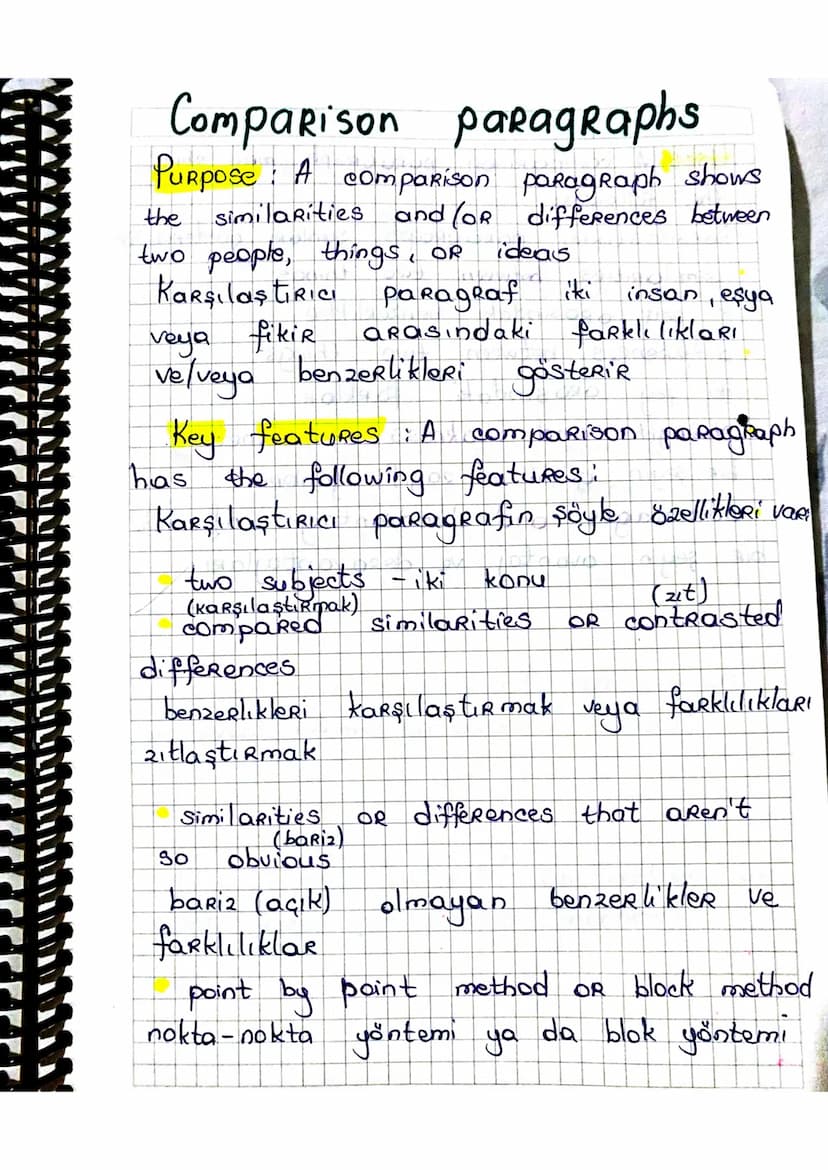 Comparison paragraphs
Purpose : A comparison paragraph shows
the similarities and/or differences between
two people, things, or ideas
Karşılaştırıcı paragraf iki insan, eşya
veya fikir arasındaki farklılıkları
ve/veya benzerlikleri gösterir
Key features : A comparison paragraph
has the following features:
Karşılaştırıcı paragrafın şöyle özellikleri var
• two subjects - iki konu
(karşılaştırmak) (zıt)
• compared similarities or contrasted
differences
benzerlikleri karşılaştırmak veya farklılıkları
zıtlaştırmak
• similarities or differences that aren't
(bariz)
so obvious
bariz (açık) olmayan benzerlikler ve
farklılıklar
• point by point method or block method
nokta-nokta yöntemi ya da blok yöntemi